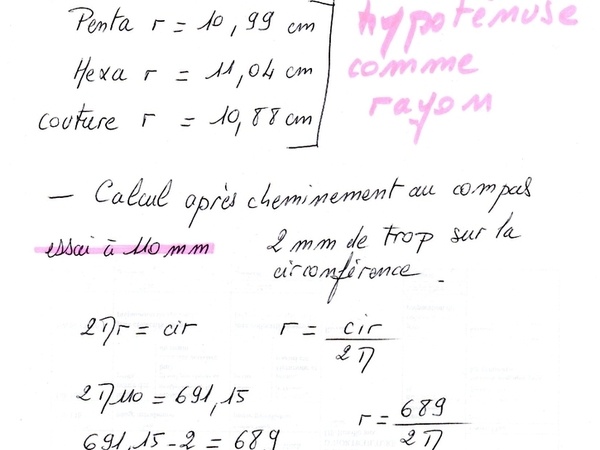 Penta r = 10,99 cm
Hexa r = 11,04 cm
couture r = 10,88 cm
hypoténuse
comme
rayon
— Calcul après cheminement au compas
essai à 110 mm
2 mm de trop sur la
circonférence.
2πr = cir
r = cir / 2π
2π110 = 691,15
r = 689 / 2π
691,15 - 2 = 689